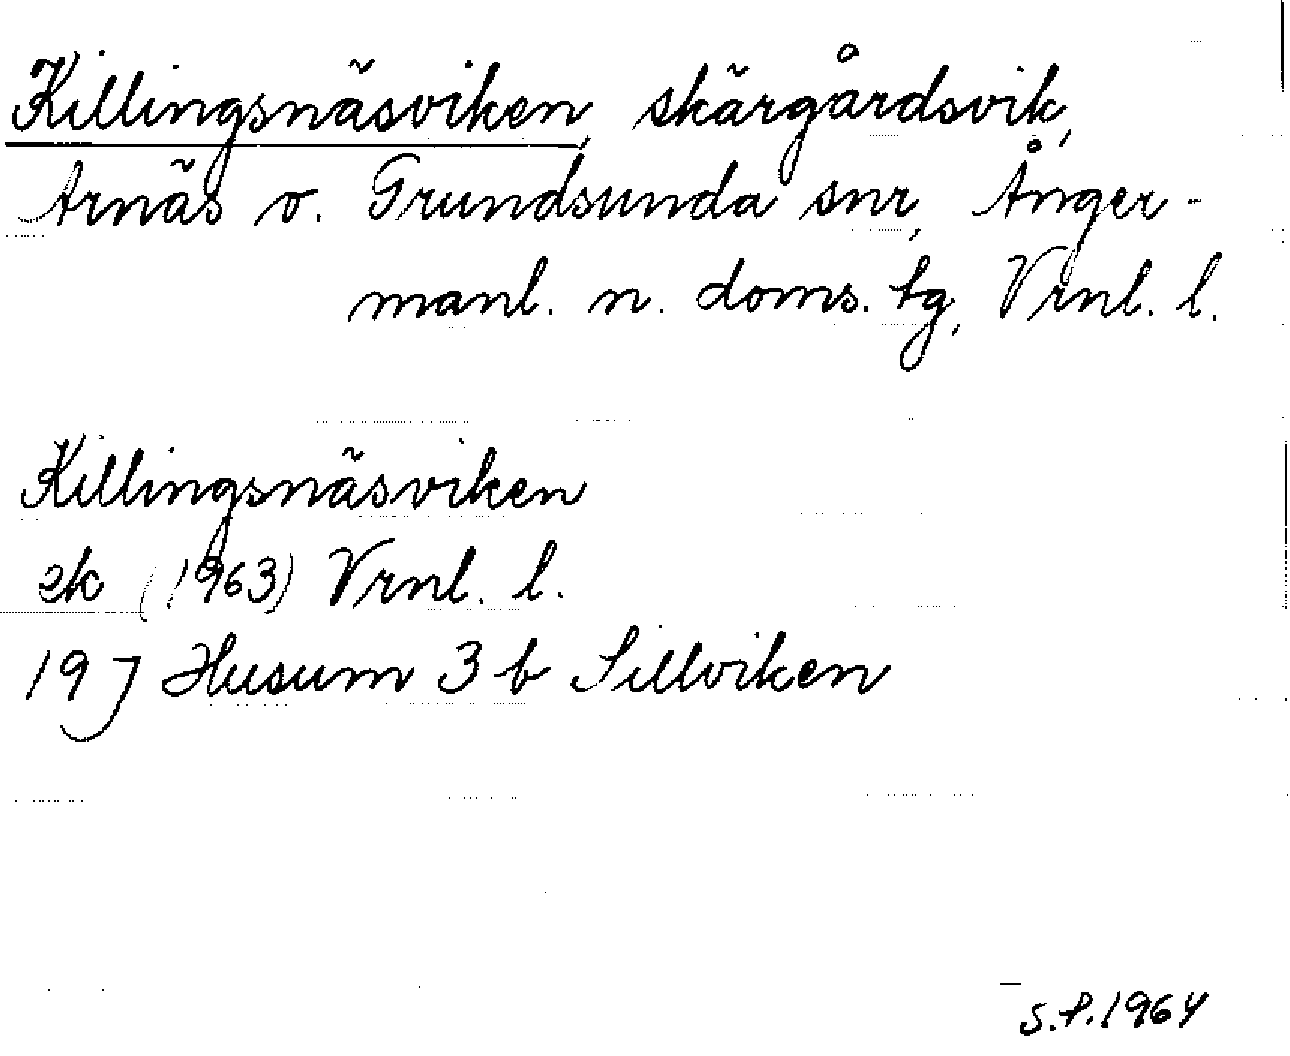 Killingsnäsviken, skärgårdsvik,
Arnäs o. Grundsunda snr, Ånger-
manl. n. doms. tg, Vrnl. l.
Killingsnäsviken
ek (1963) Vrnl. l.
19 J Husum 3 b Sillviken
S.P.1964